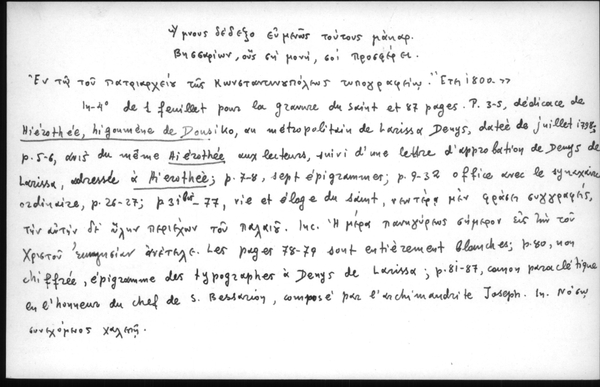 Ὕμνους δέδεξο εὐμενῶς τούτους μάκαρ.
Βησσαρίων, οὓς σὴ μονὴ, σοὶ προσφέρει.
Ἐν τῷ τοῦ πατριαρχείου τῆς Κωνσταντινουπόλεως τυπογραφείῳ. Ἔτει 1800.»
In-4° de 1 feuillet pour la gravure du saint et 87 pages. P. 3-5, dédicace de
Hiérothée, higoumène de Dousiko, au métropolitain de Larissa Denys, datée de juillet 1798;
p. 5-6, avis du même Hiérothée aux lecteurs, suivi d'une lettre d'approbation de Denys de
Larissa, adressée à Hierothée; p. 7-8, sept épigrammes; p. 9-32 office avec le synaxaire
ordinaire, p. 26-27; p 31-77, vie et éloge du saint, νεωτέρᾳ μὲν φράσει συγγραφείς,
τὴν αὐτὴν δὲ ὕλην περιέχων τοῦ παλαιοῦ. Inc. Ἡ μέρα πανηγύρεως σήμερον εἰς τὴν τοῦ
Χριστοῦ ἐκκλησίαν ἀνέτειλε. Les pages 78-79 sont entièrement blanches; p. 80, non
chiffrée, épigramme des typographes à Denys de Larissa; p. 81-87, canon paraclétique
en l'honneur du chef de S. Bessarion, composé par l'archimandrite Joseph. In. Νόσῳ
συνεχόμενος χαλεπῇ.